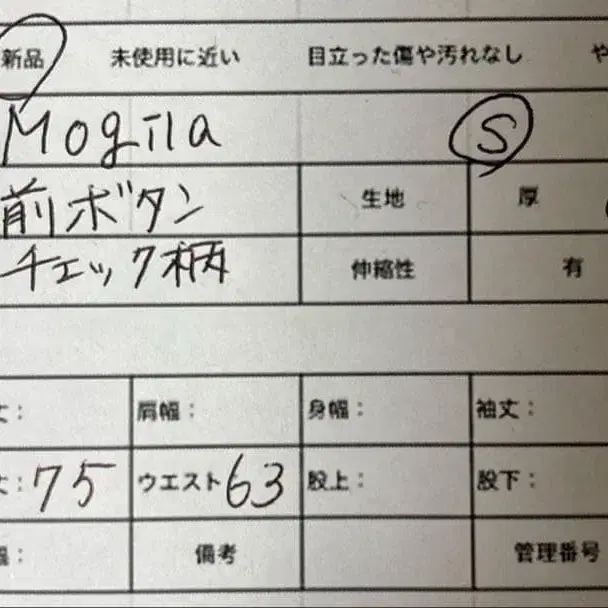 新品 未使用に近い 目立った傷や汚れなし や
Mogila S
前ボタン 生地 厚
チェック柄 伸縮性 有
丈: 肩幅: 身幅: 袖丈:
丈:75 ウエスト63 股上: 股下:
幅: 備考 管理番号